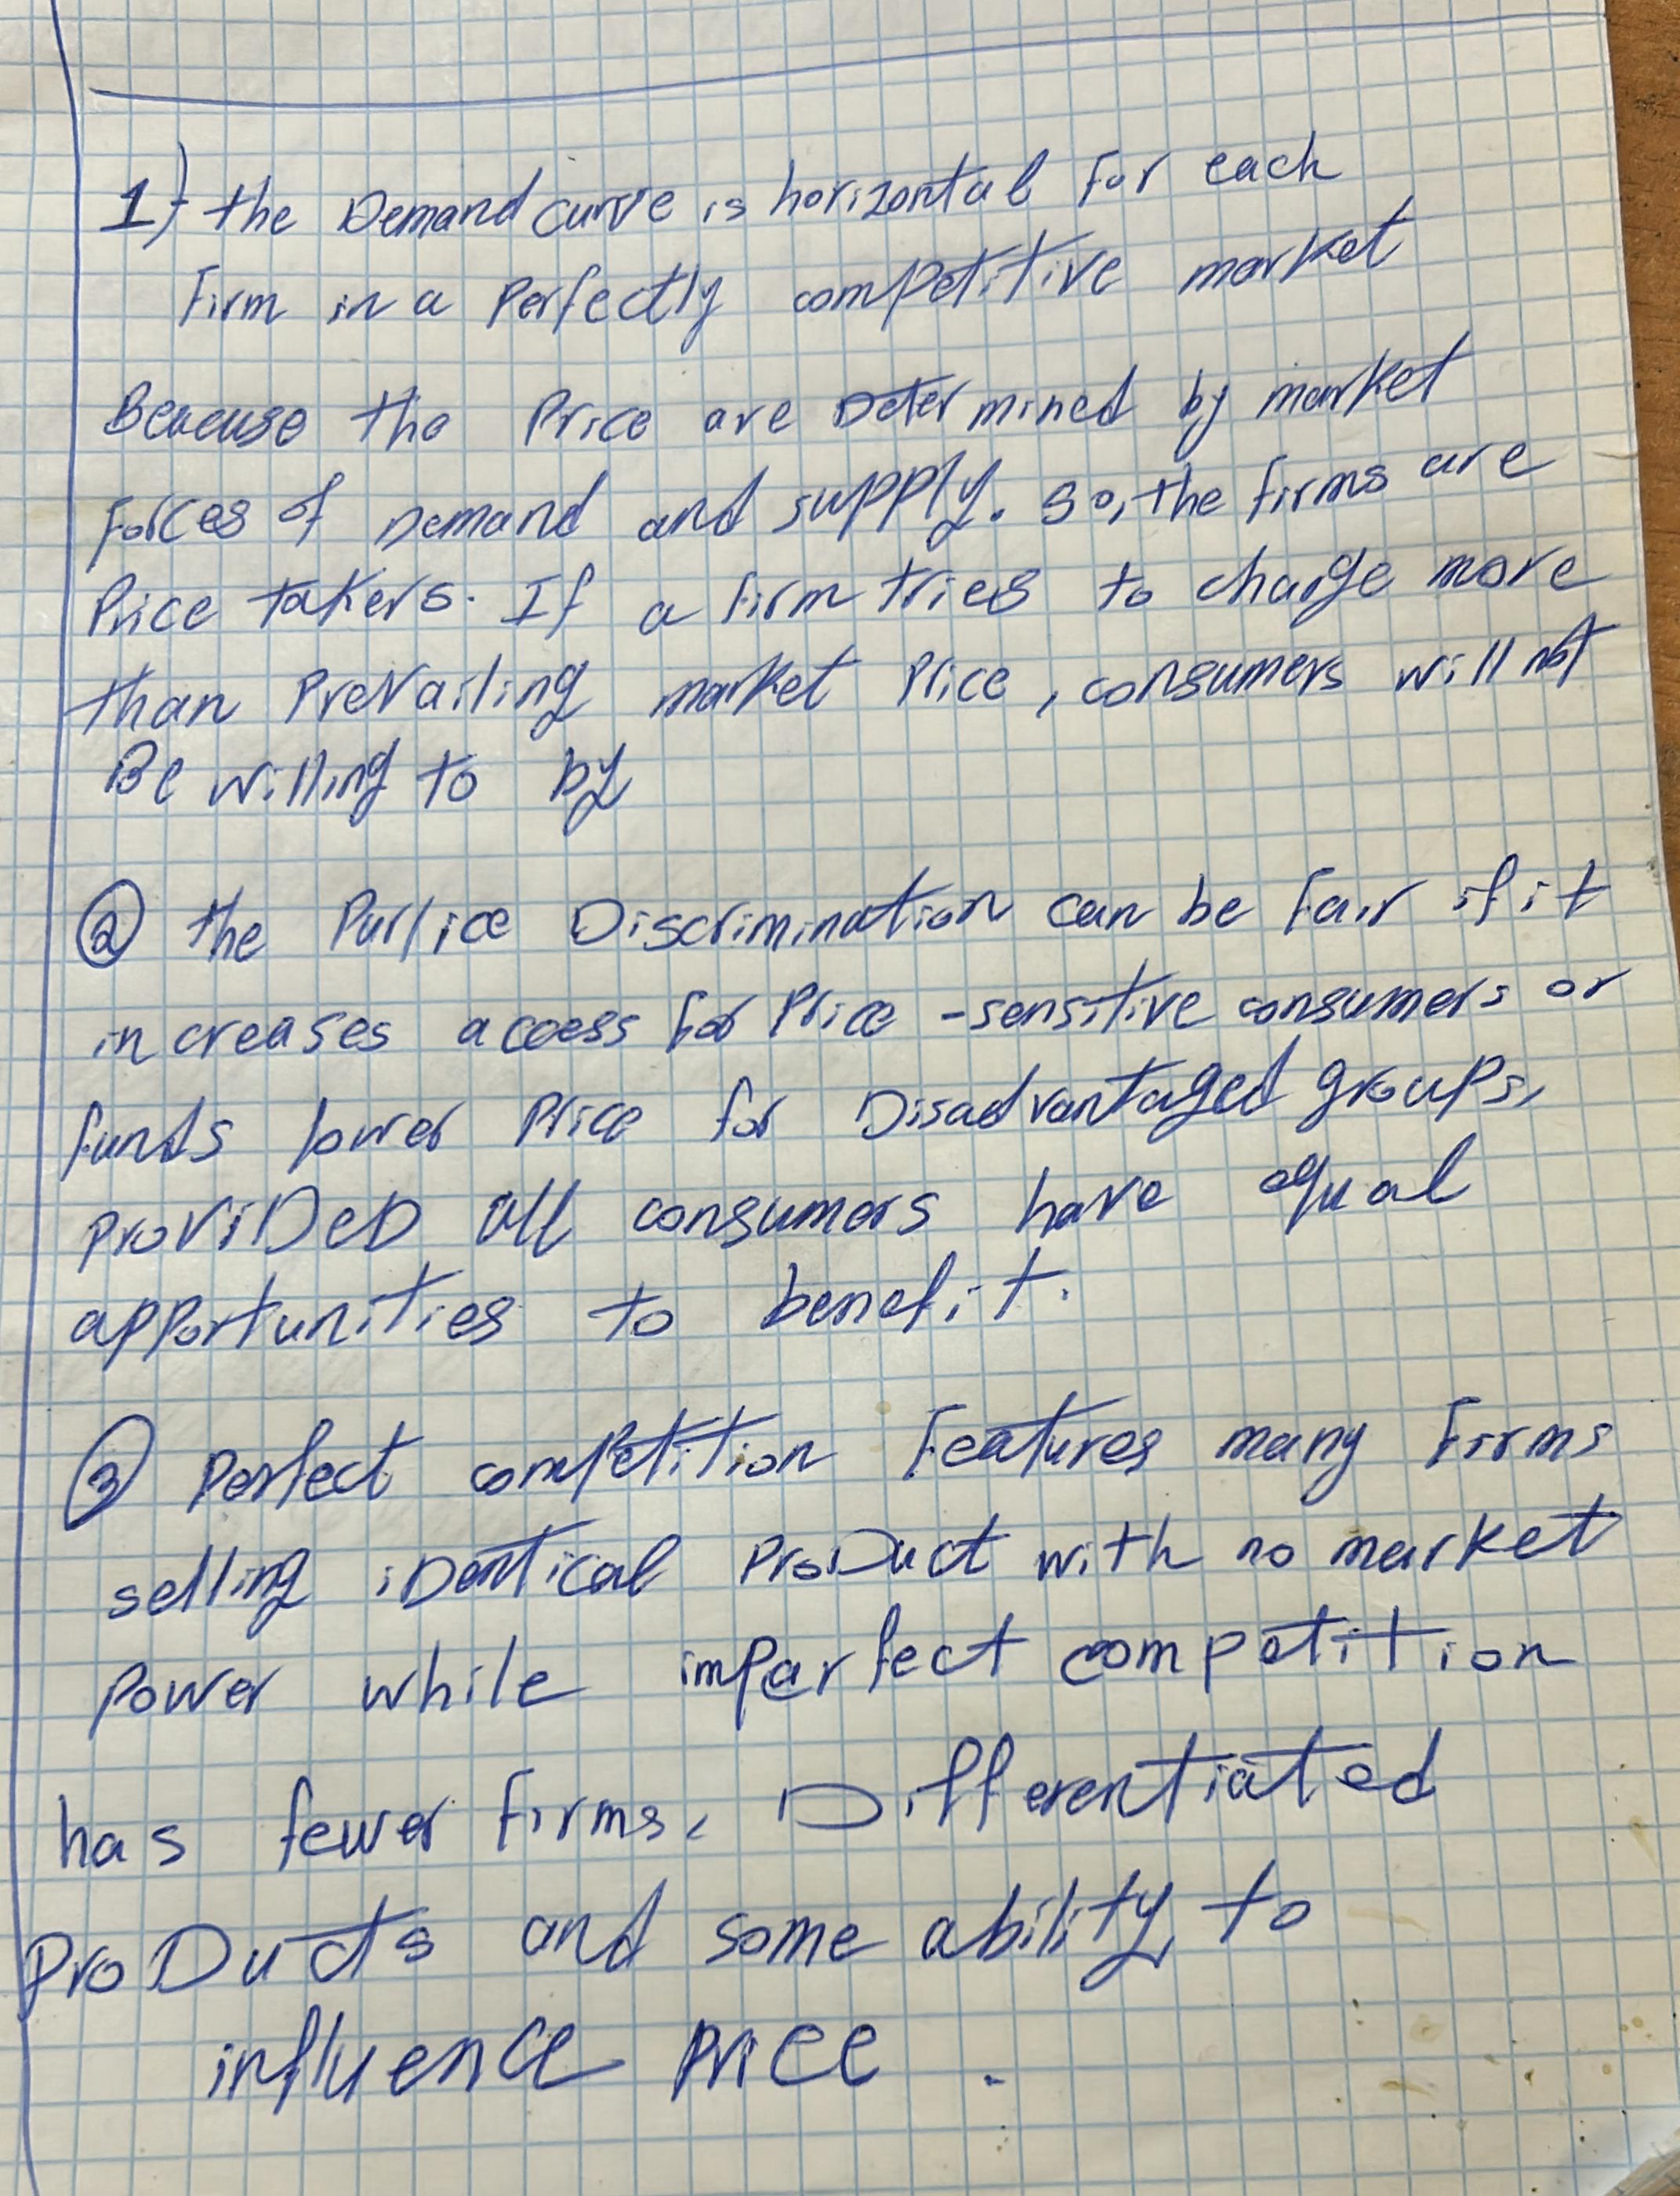 1) the Demand curve is horizontal For each
Firm in a Perfectly competitive market
Beacuse the Price are Determined by market
Forces of Demand and supply. So, the firms are
Price takers. If a firm tries to charge more
than Prevailing market Price, consumers will not
Be willing to by
② the Discrimination can be Fair if it
increases access for Price -sensitive consumers or
funds lower Price for Disadvantaged groups,
proviDeD all consumers have equal
apportunities to benefit.
③ Perfect competition Features many Firms
selling iDentical ProDuct with no market
Power while imparfect competition
has fewer Firms, Differentiated
ProDucts and some ability to
influence price .